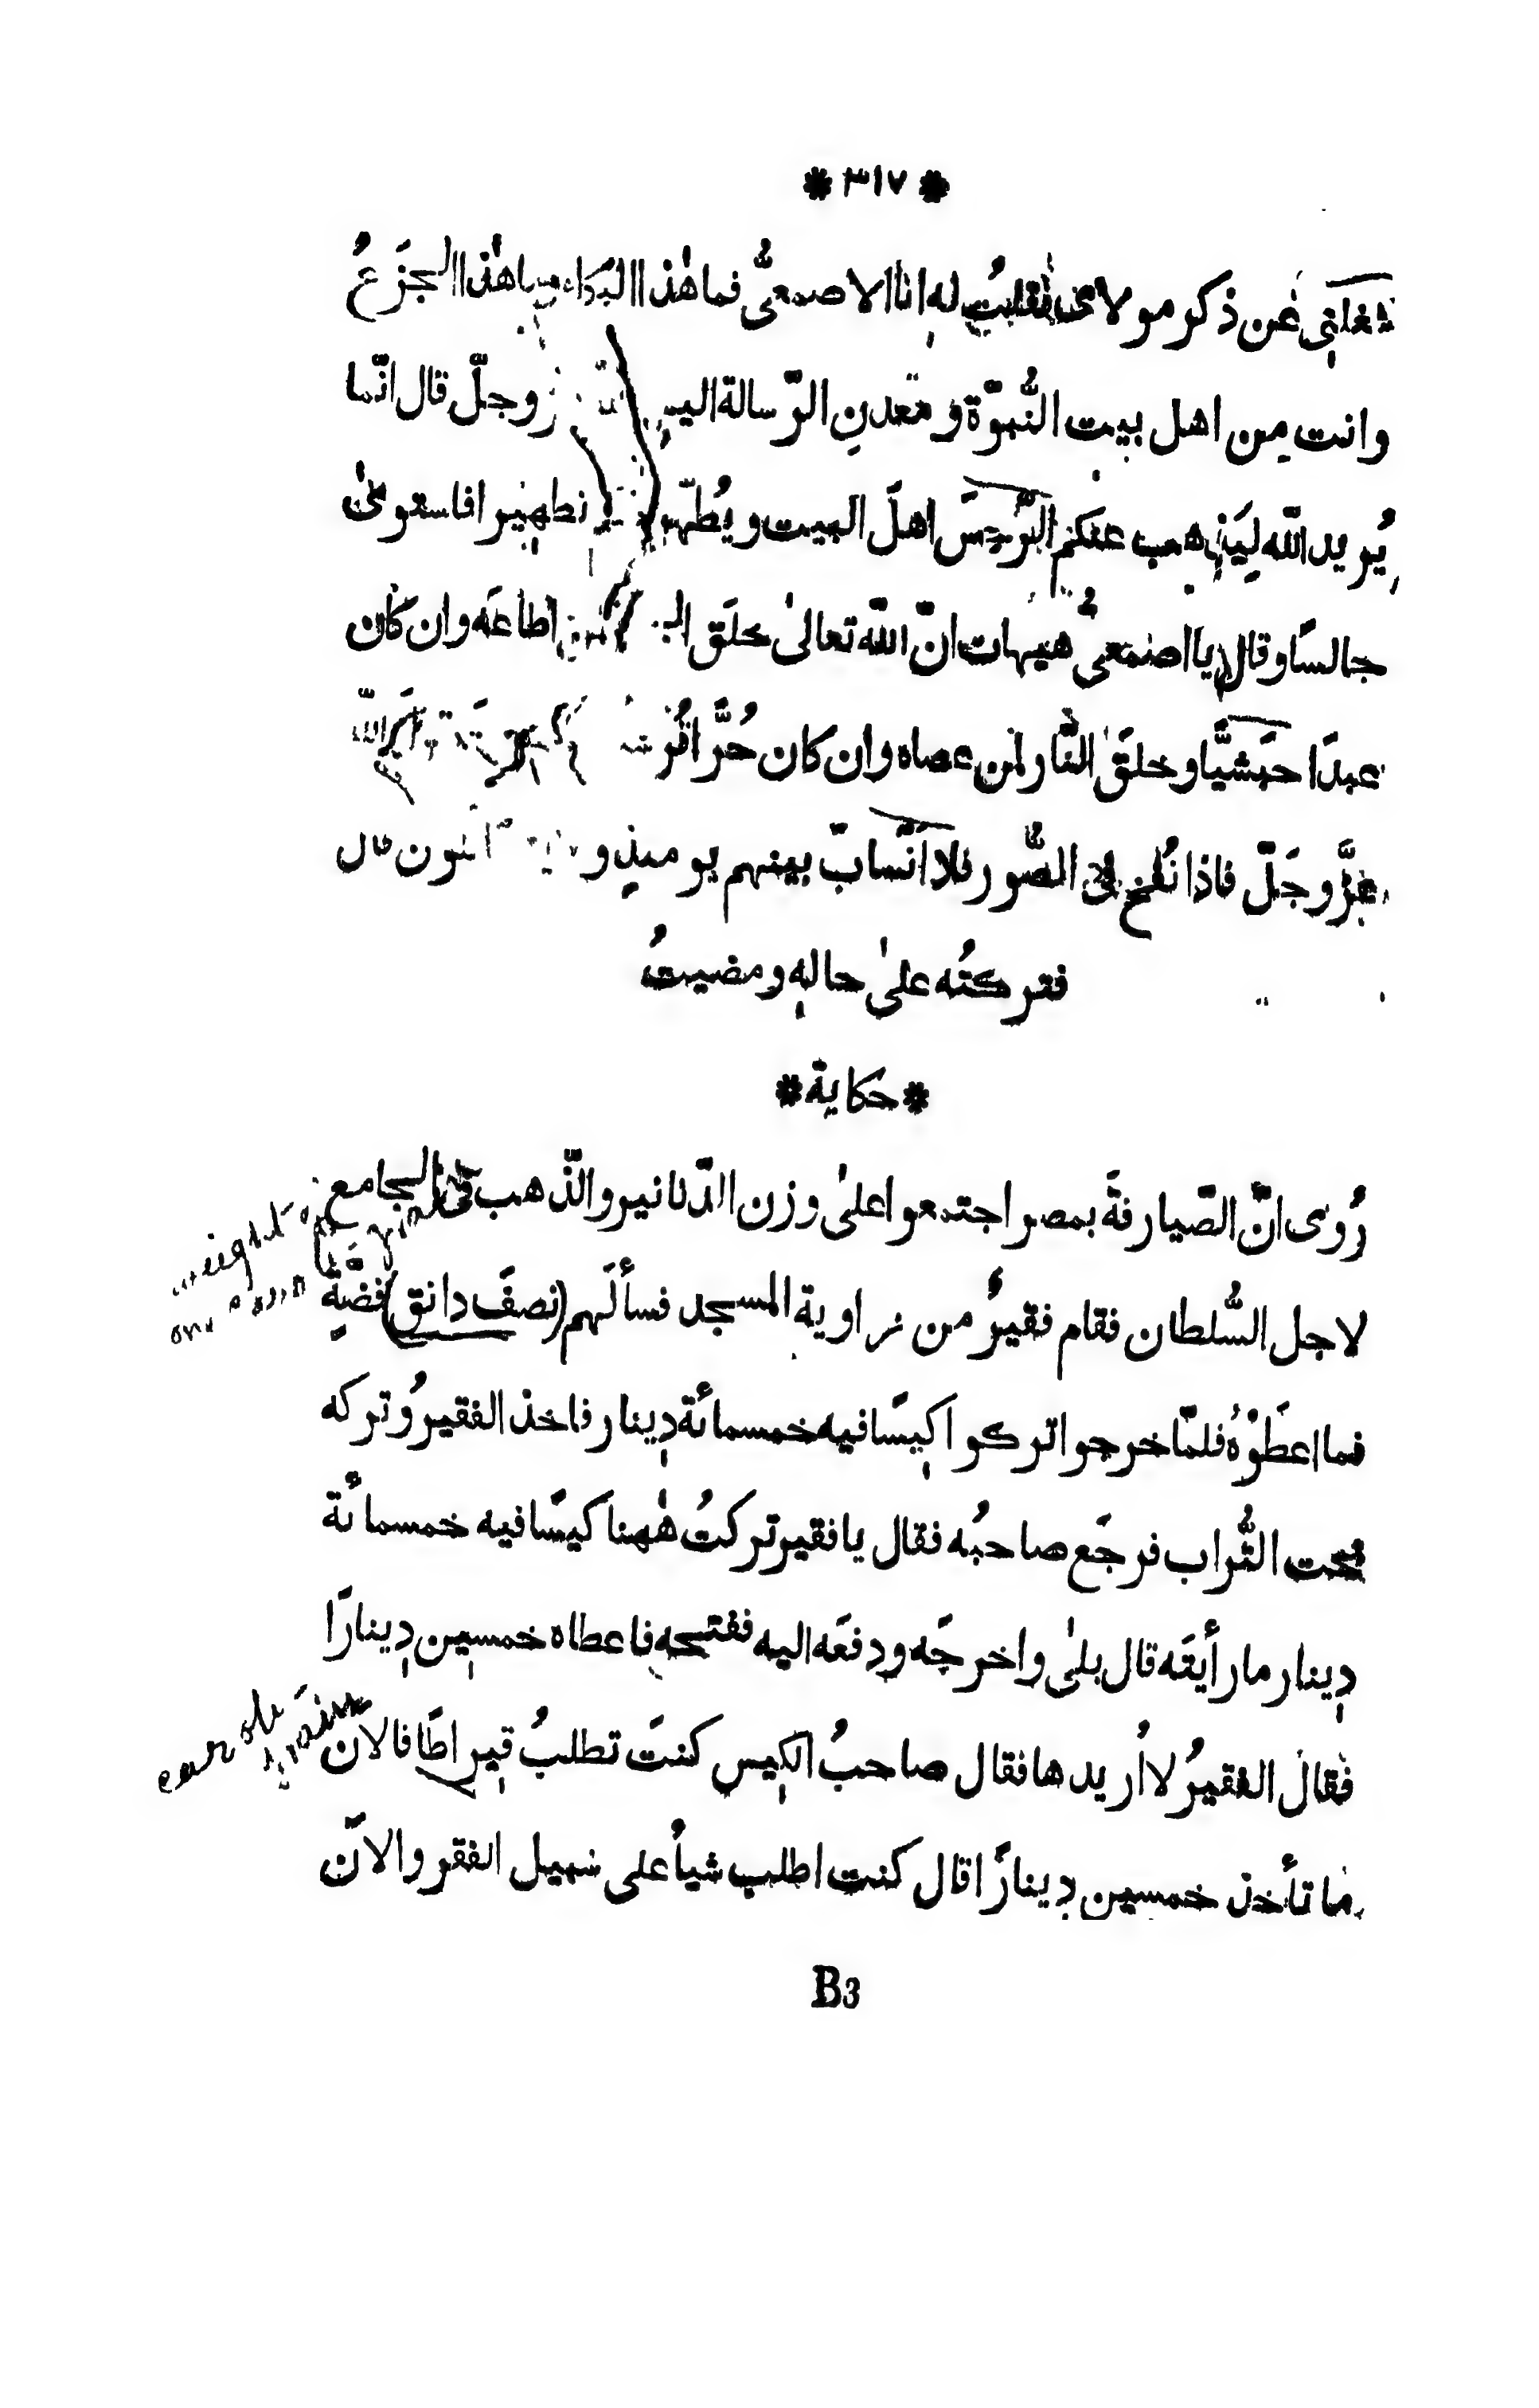 * ٣١٧ *
شغلنى عن ذكر مولاى فقلتُ له انا الاصمعىُّ فما هٰذا البكاء وما هٰذا الجزَعُ
وانت من اهل بيت النُّبوّة ومعدنِ الرّسالة اليس وجلّ قال انّما
يُريد اللّه لِيَذهب عنكم الرّجسَ اهلَ البيت ويُطهّر تطهيرا فاستوىٰ
جالسًا وقال يا اصمعىُّ هيهات انّ اللّه تعالىٰ خلَق اطاعَه وان كان
عبدًا حبَشيًّا وخلَق النّار لمن عصاه وان كان حُرًّا
عزَّ وجَلّ فاذا نُفخ فى الصُّور فلا انْسابَ بينهم يومئذٍ و
فتركتُه علىٰ حالهِ ومضيتُ
* حكاية *
رُوى انّ الصّيارفةَ بمصر اجتمعوا علىٰ وزن الدّنانير والذّهب فى الجامع
لاجل السُّلطان فقام فقيرٌ من زاوية المسجد فسألَهم (نصفَ دانق) فضّةٍ
فما اعطَوْهُ فلمّا خرجوا تركوا كيسًا فيه خمسمائة دِينار فاخذ الفقيرُ وتركه
تحت التُّراب فرجَع صاحبُه فقال يا فقير تركتُ هٰهنا كيسًا فيه خمسمائة
دِينار ما رأيتَه قال بلىٰ واخرجَه ودفعَه اليه ففتحه فاعطاه خمسِين دِينارًا
فقال الفقيرُ لا أُريدها فقال صاحبُ الكِيس كنتَ تطلبُ قِيراطًا فالآن
ما تأخذ خمسين دِينارًا قال كنت اطلب شيأً على سبيل الفقر والآن
B3